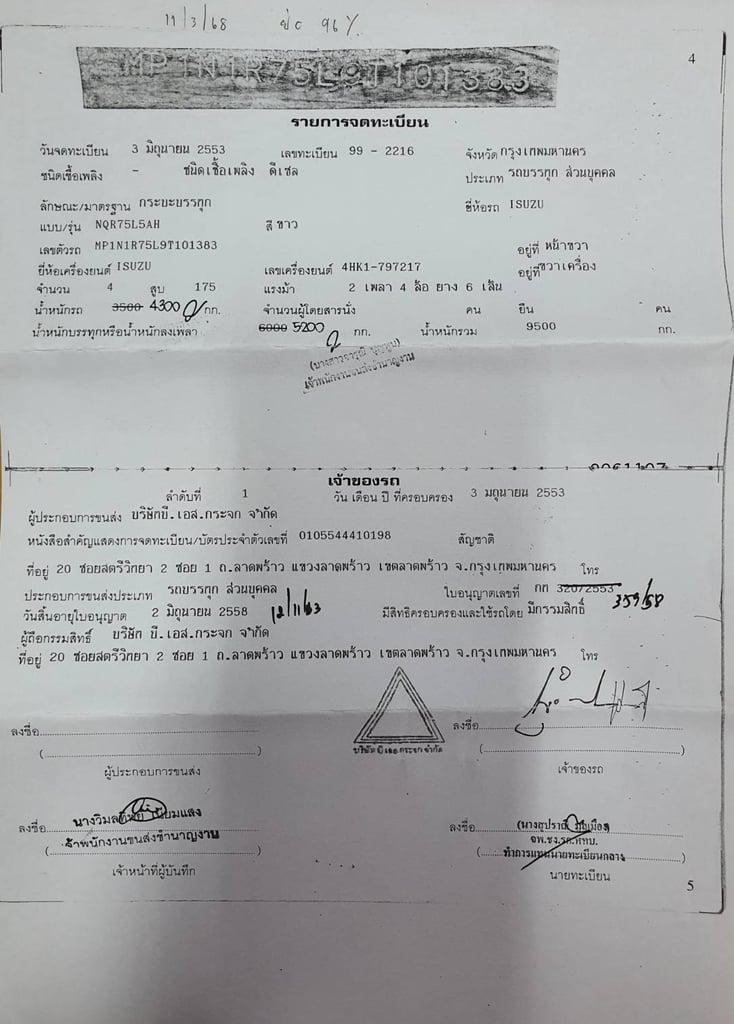 11/3/68 ย่อ 96%
4
MP1N1R75L9T101383
รายการจดทะเบียน
วันจดทะเบียน 3 มิถุนายน 2553 เลขทะเบียน 99 - 2216 จังหวัด กรุงเทพมหานคร
ชนิดเชื้อเพลิง - ชนิดเชื้อเพลิง ดีเซล ประเภท รถบรรทุก ส่วนบุคคล
ลักษณะ/มาตรฐาน กระบะบรรทุก ยี่ห้อรถ ISUZU
แบบ/รุ่น NQR75L5AH สี ขาว
เลขตัวรถ MP1N1R75L9T101383 อยู่ที่ หน้าขวา
ยี่ห้อเครื่องยนต์ ISUZU เลขเครื่องยนต์ 4HK1-797217 อยู่ที่ ขวาเครื่อง
จำนวน 4 สูบ 175 แรงม้า 2 เพลา 4 ล้อ ยาง 6 เส้น
น้ำหนักรถ 3500 4300 กก. จำนวนผู้โดยสารนั่ง คน ยืน คน
น้ำหนักบรรทุกหรือน้ำหนักลงเพลา 6000 5200 กก. น้ำหนักรวม 9500 กก.
เจ้าพนักงานขนส่งชำนาญงาน
เจ้าของรถ
ลำดับที่ 1 วัน เดือน ปี ที่ครอบครอง 3 มิถุนายน 2553
ผู้ประกอบการขนส่ง บริษัทบี.เอส.กระจก จำกัด
หนังสือสำคัญแสดงการจดทะเบียน/บัตรประจำตัวเลขที่ 0105544410198 สัญชาติ
ที่อยู่ 20 ซอยสตรีวิทยา 2 ซอย 1 ถ.ลาดพร้าว แขวงลาดพร้าว เขตลาดพร้าว จ.กรุงเทพมหานคร โทร
ประกอบการขนส่งประเภท รถบรรทุก ส่วนบุคคล ใบอนุญาตเลขที่ กท 320/2553 359/58
วันสิ้นอายุใบอนุญาต 2 มิถุนายน 2558 12/11/63 มีสิทธิครอบครองและใช้รถโดย มีกรรมสิทธิ์
ผู้ถือกรรมสิทธิ์ บริษัท บี.เอส.กระจก จำกัด
ที่อยู่ 20 ซอยสตรีวิทยา 2 ซอย 1 ถ.ลาดพร้าว แขวงลาดพร้าว เขตลาดพร้าว จ.กรุงเทพมหานคร โทร
บริษัท บี เอส กระจก จำกัด
ลงชื่อ ลงชื่อ
( ) ( )
ผู้ประกอบการขนส่ง เจ้าของรถ
ลงชื่อ ลงชื่อ
เจ้าพนักงานขนส่งชำนาญงาน
( ) ( ทำการแทนนายทะเบียนกลาง )
เจ้าหน้าที่ผู้บันทึก นายทะเบียน
5